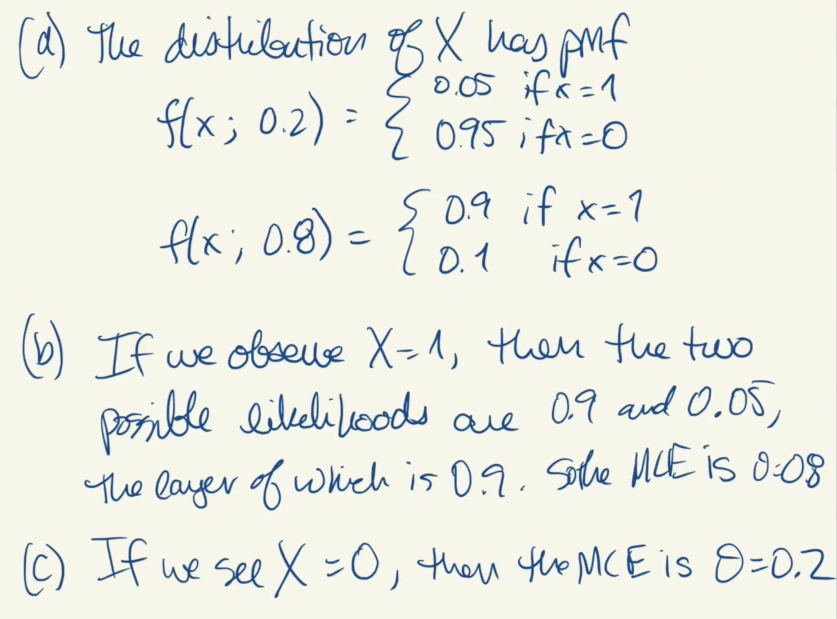 (a) The distribution of X has pmf
f(x; 0.2) = { 0.05 if x=1
0.95 if x=0
f(x; 0.8) = { 0.9 if x=1
0.1 if x=0
(b) If we observe X=1, then the two
possible likelihoods are 0.9 and 0.05,
the larger of which is 0.9. So the MLE is 0.08
(c) If we see X=0, then the MLE is θ=0.2